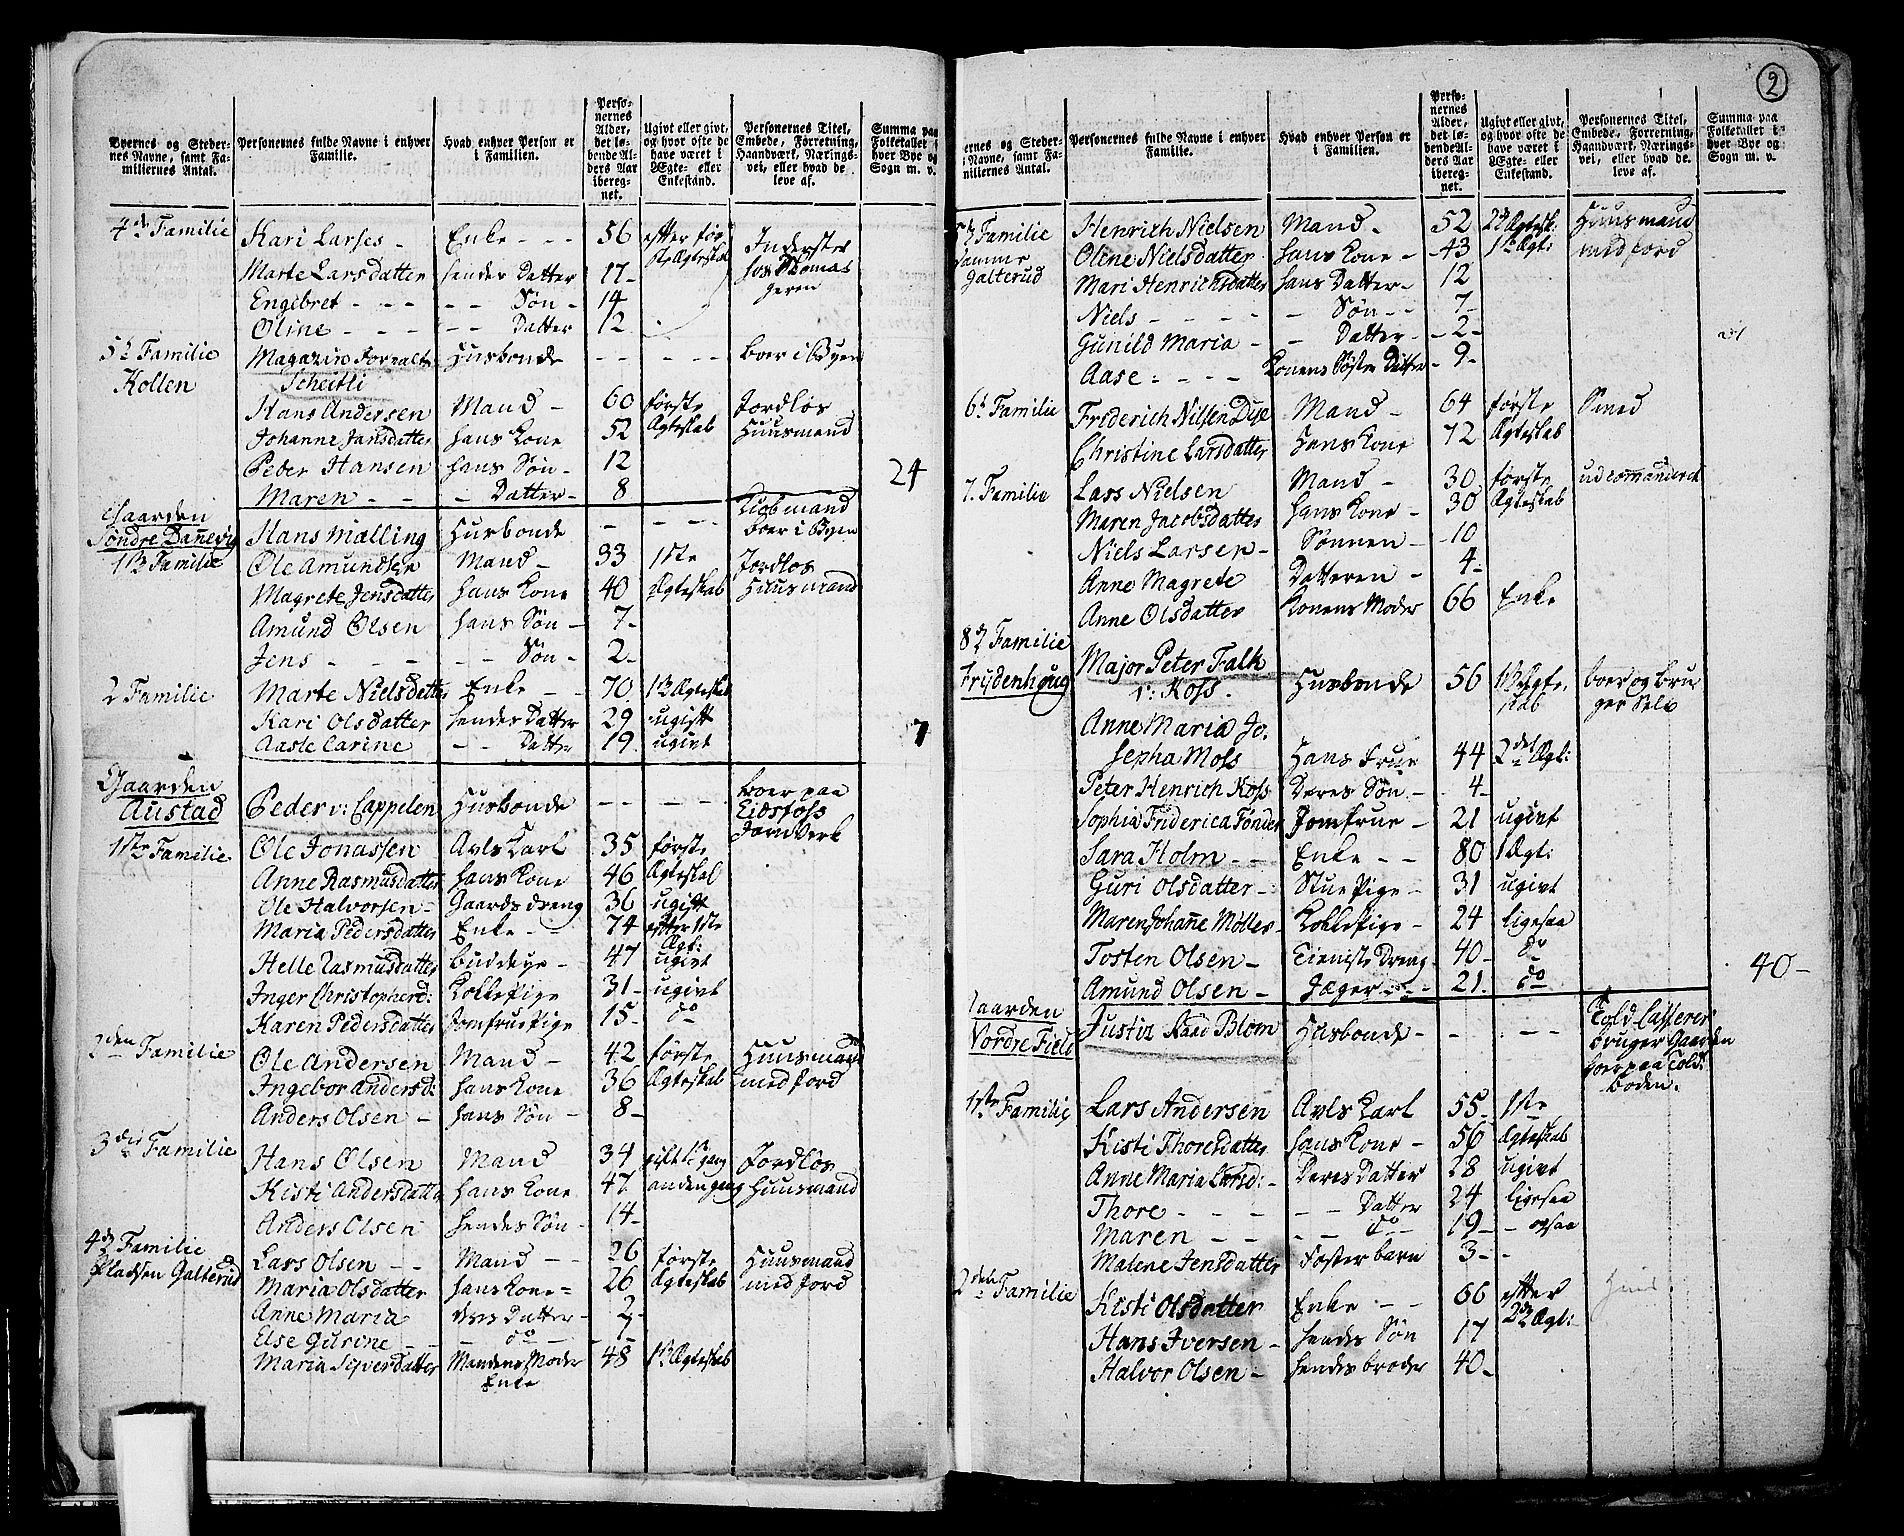 2
Byernes og Steder-
nes Navne, samt Fa-
miliernes Antal.
Personernes fulde Navne i enhver
Familie.
Hvad enhver Person er
i Familien.
Perso-
nernes
Alder,
det lø-
bende Al-
ders Aar
ibereg-
net.
Ugivt eller givt,
og hvor ofte de
have været i
Ægte- eller
Enkestand.
Personernes Titel,
Embede, Forretning,
Haandværk, Nærings-
vei, eller hvad de
leve af.
Summa paa
Folketallet i
hver Bye og
Sogn m. v.
4de Familie Kari Larses - Enke - - - 56 efter før-
ste Ægteskab Inderster
hos Thomas
geren
Marte Larsdatter hendes Datter 17 -
Engebret - - - - - Søn - 14
Oline - - - - - Datter 12
5te Familie
Kollen Magazin Forvalter
Scheitli Husbonde - - - - - boer i Byen
Hans Andersen Mand - 60 første Jordløs
Johanne Jansdatter hans Kone 52 Ægteskab Huusmand
Peder Hansen hans Søn - 12
Maren - - - Datter - 8 24
Gaarden
Søndre Dannevig Hans Malling Husbonde - - - - Kiøbmand
boer i Byen
1ste Familie Ole Amundsen Mand - 33 1ste Jordløs
Magrete Jensdatter hans Kone 40 Ægteskab Huusmand
Amund Olsen hans Søn - 7 -
Jens - - - - - Søn - 2 -
2 Familie Marte Nielsdatter Enke - - 70 1ste Ægteskab
Kari Olsdatter hendes Datter 29 ugift
Aaste Carine - - Datter 19 ugivt 7
Gaarden
Austad Peder v: Cappelen Husbonde - - - - - boer paa
Eidsfoss
JernVerk
1ste Familie Ole Jonassen Avls Karl 35 første
Anne Rasmusdatter hans Kone 46 Ægteskab
Ole Halvorsen - Gaardsdreng 36 ugift
Maria Pedersdatter Enke - - 74 efter 1ste
Ægt:
Helle Rasmusdatter Buddeye - 47 ugivt
Inger Christopherd: Kokkepige 31 - ugivt
Karen Pedersdatter Jomfrue Pige 15 - do
2den Familie Ole Andersen Mand - 42 første Huusmand
Ingebor Andersd: hans Kone 36 Ægteskab med Jord
Anders Olsen - hans Søn - 8 -
3die Familie Hans Olsen Mand 34 gift 1te gang Jordløs
Kisti Andersdatter hans Kone 47 anden gang Huusmand
Anders Olsen hendes Søn - 14 -
4de Familie
Pladsen Galterud Lars Olsen - - Mand - - 26 første Huusmand
Maria Olsdatter hans Kone = 26 Ægteskab med Jord
Anne Maria deres Datter - 2 -
Else Gurine - - - do - 1 -
Maria Siverdatter Mandens Moder 48 1ste Ægteskab
Enke
ernes og Steder-
s Navne, samt Fa-
iliernes Antal.
Personernes fulde Navne i enhver
Familie.
Hvad enhver Person er
i Familien.
Perso-
nernes
Alder,
det lø-
bende Al-
ders Aar
ibereg-
net.
Ugivt eller givt,
og hvor ofte de
have været i
Ægte- eller
Enkestand.
Personernes Titel,
Embede, Forretning,
Haandværk, Nærings-
vei, eller hvad de
leve af.
Summa paa
Folketallet i
hver Bye og
Sogn m. v.
5te Familie
Sammer
Galterud Henrich Nielsen Mand - 52 2de Ægtesk: Huusmand
Oline Nielsdatter hans Kone - 43 1te Ægt: med Jord
Mari Henrichsdatter hans Datter - 12
Niels - - - - - Søn - - 7 -
Gunild Maria - - Datter - - 2 -
Aase : - - - - Konens Søster Datter - 9 -
6te Familie Friderich Nilsen Dyse Mand - 64 første Smed
Christine Larsdatter Hans Kone 72 Ægteskab
7. Familie Lars Nielsen Mand - 30 første udcommanderet
Maren Jacobsdatter hans Kone - 30 Ægteskab
Niels Larsen - Sønnen - 10
Anne Magrete Datteren - 4 -
Anne Olsdatter Konens Moder 66 Enke
8de Familie
Frydenhoug Major Peter Falk
v: Koss. Husbonde 56 1ste Ægte,
skab boer og bru
ger Selv
Anne Maria Jo,
sepha Moss Hans Frue 44 2det Ægt:
Peter Henrich Koss Deres Søn - 4 -
Sophia Friderica Tønder Jomfrue - 21 ugivt
Sara Holm - - Enke - - 80 1 Ægt:
Guri Olsdatter - Stue Pige - 31 ugivt
Maren Johanne Møller - Kokkepige - 24 ligesaa
Tosten Olsen - Tieniste Dreng - 40 - do
Amund Olsen - Jæger - - 21 - do 40 -
Gaarden
Nordre Field Justiz Raad Blom Husbonde - - - - - Told Casserer
bruger Gaarden
boer paa Told,
boden.
1ste Familie Lars Andersen Avls Karl 55 - 1ste
Kisti Thoresdatter hans Kone - 56 Ægteskab
Anne Maria Larsd: - Deres Datter 28 ugivt
Thore - - - - - Datter 24 ligesaa
Maren - - - - do - 19 - - ogsaa
Malene Jensdatter Foster barn 3 - -
2den Familie Kisti Olsdatter Enke - - 66 efter
2de Ægt: Huus
Hans Iversen - hendes Søn 17
Halvor Olsen - hendes broder 40 -